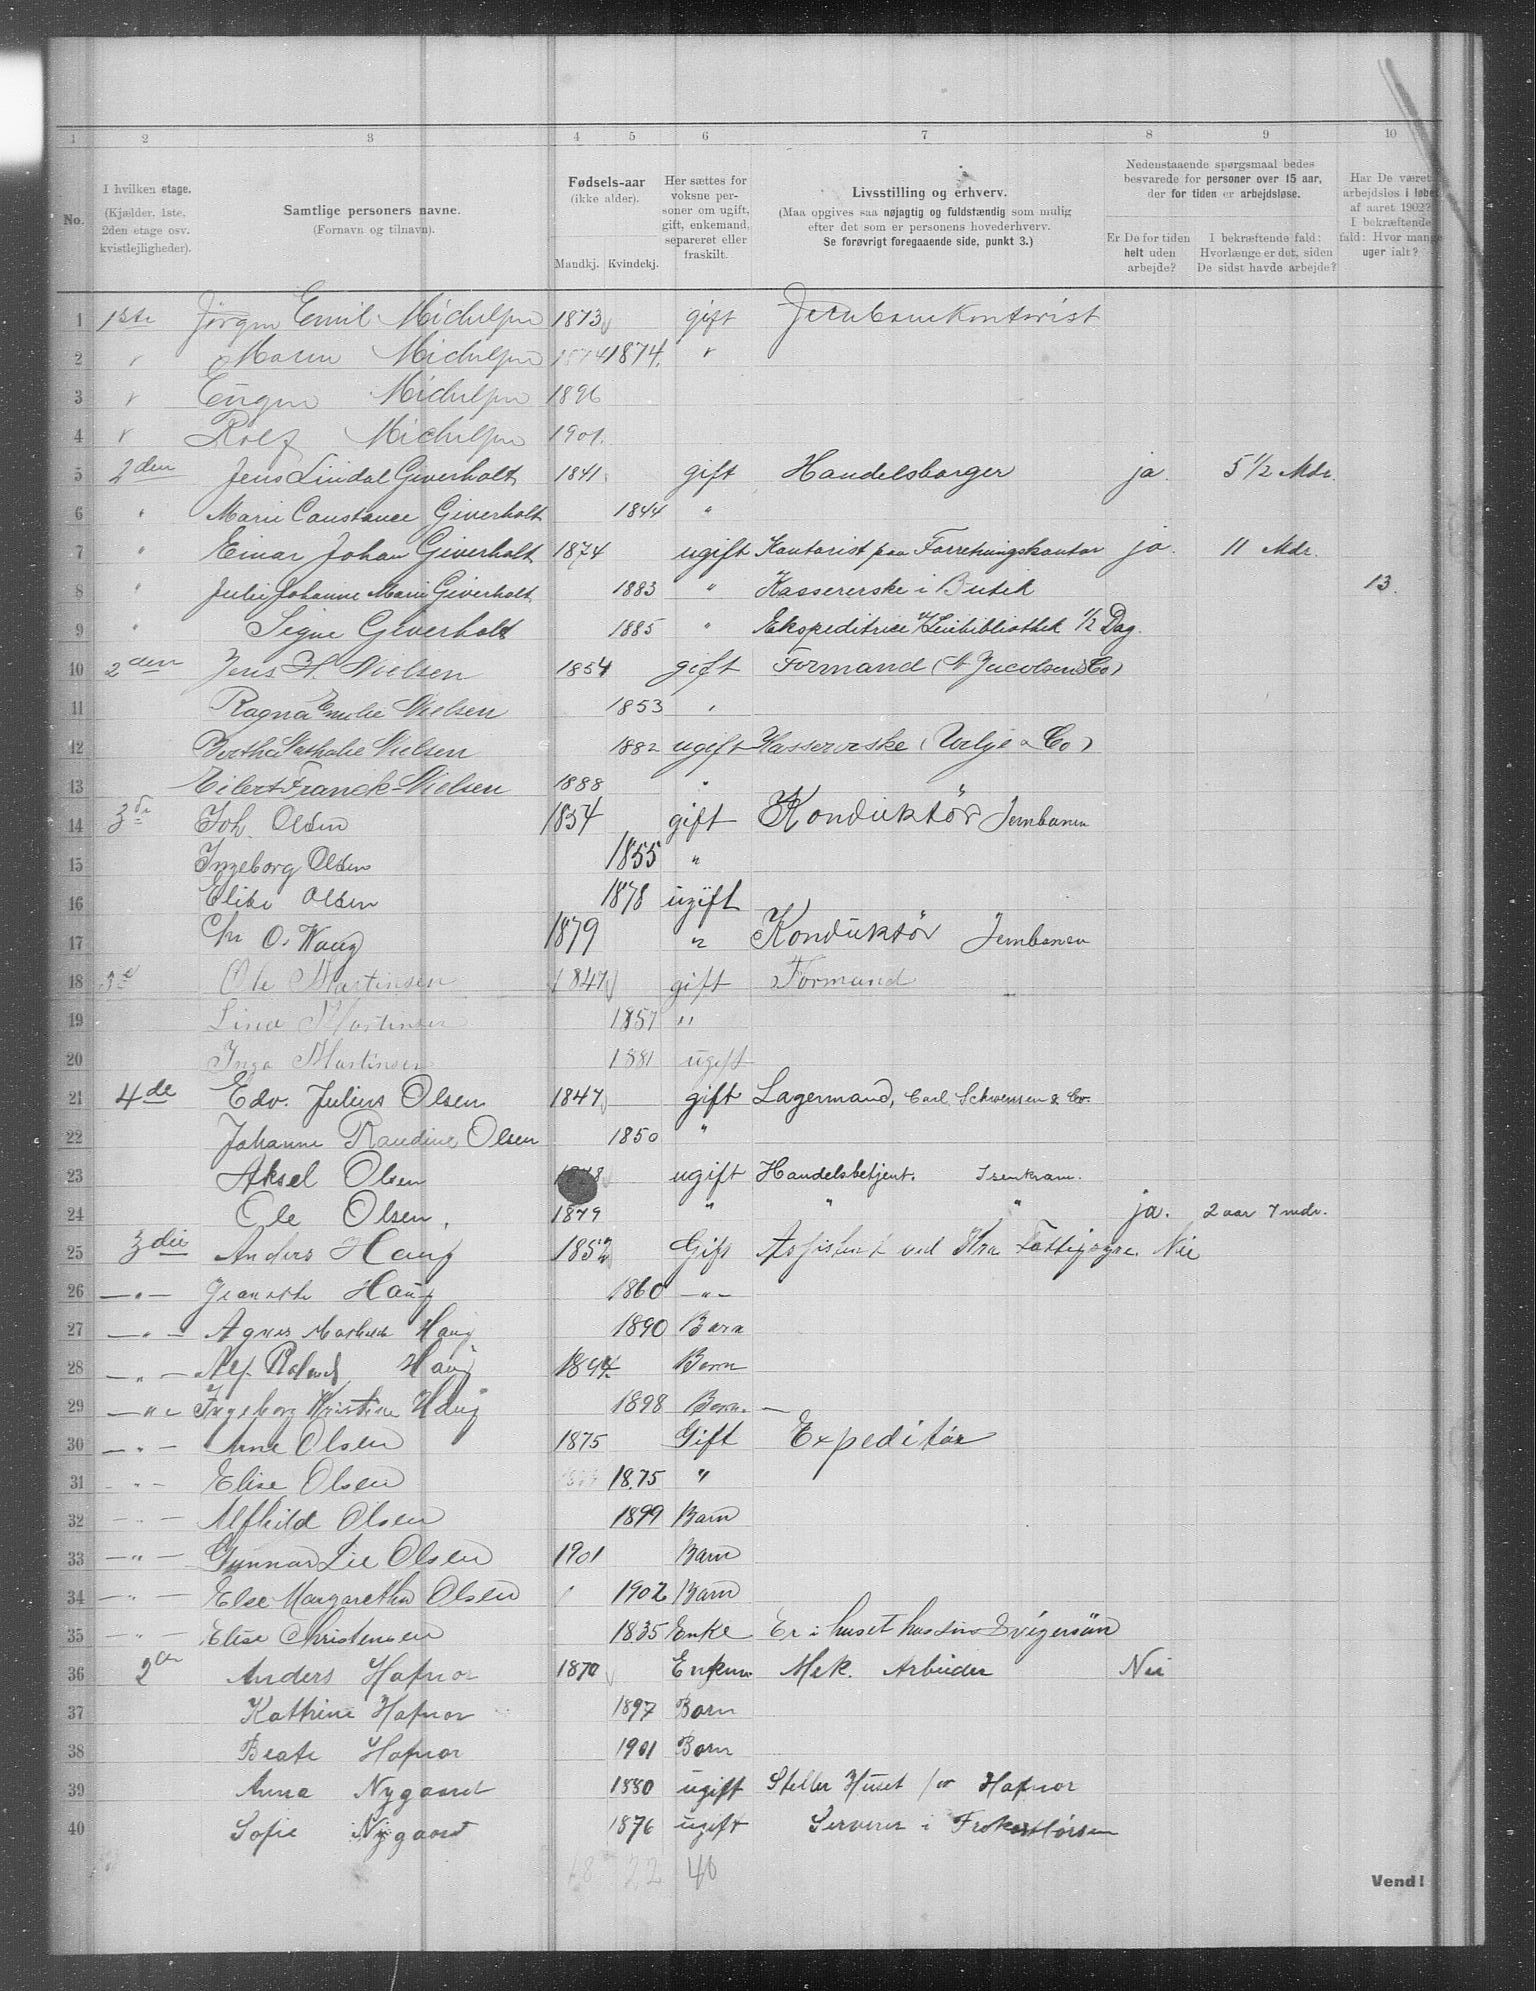 1 2 3 4 5 6 7 8 9 10
No.
I hvilken etage. (Kjælder, 1ste, 2den etage osv. kvistlejligheder).
Samtlige personers navne. (Fornavn og tilnavn).
Fødsels-aar (ikke alder). Mandkj. Kvindekj.
Her sættes for voksne personer om ugift, gift, enkemand, separeret eller fraskilt.
Livsstilling og erhverv. (Maa opgives saa nøjagtig og fuldstændig som mulig efter det som er personens hovederhverv. Se forøvrigt foregaaende side, punkt 3.)
Nedenstaaende spørgsmaal bedes besvarede for personer over 15 aar, der for tiden er arbejdsløse.
Er De for tiden helt uden arbejde?
I bekræftende fald: Hvorlænge er det, siden De sidst havde arbejde?
Har De været arbejdsløs i løbet af aaret 1902? I bekræftende fald: Hvor mange uger ialt?
1 1ste Jörgen Emil Michelsen 1873 gift Jernbanekontorist
2 " Maren Michelsen 1874 "
3 " Eugen Michelsen 1896
4 " Rolf Michelsen 1901.
5 2den Jens Lindal Giverholt 1841 gift Handelsborger ja. 5 1/2 Mdr.
6 " Marie Constance Giverholt 1844 "
7 " Einar Johan Giverholt 1874 ugift Kontorist paa Forretningskontor ja. 11 Mdr.
8 " Julie Johanne Marie Giverholt 1883 " Kassererske i Butik 13.
9 " Signe Giverholt 1885 " Ekspeditrice v/ Leiebibliothek 1/2 Dag.
10 2den Jens H. Nielsen 1854 gift Formand (A Jacobsen & Co)
11 Ragna Emilie Nielsen 1853 "
12 Bertha Nathalie Nielsen 1882 ugift Kassererske ( & Co)
13 Eilert Franck-Nielsen 1888 "
14 3de Joh. Olsen 1854 gift Konduktör Jernbanen
15 Ingeborg Olsen 1855 "
16 Elise Olsen 1878 ugift
17 Chr O. Haug 1879 " Konduktör Jernbanen
18 3de Ole Martinsen 1847 gift Formand
19 Lina Martinsen 1857 "
20 Inga Martinsen 1881 ugift
21 4de Edv. Julius Olsen 1847 gift Lagermand, Carl Schwensen & Co.
22 Johanne Raudine Olsen 1850 "
23 Aksel Olsen ugift Handelsbetjent. Isenkram.
24 Ole Olsen. 1879 " " " ja. 2 aar 7 mdr.
25 3die Anders Haug 1852 Gift Assistent ved Kra Fattigvæ. Nei
26 — " — Jeanette Haug 1860 — " —
27 — " — Agnes Haug 1890 Barn
28 — " — Alf Haug 1894. Barn
29 — " — Ingeborg Kristine Haug 1898 Barn. —
30 — " — Arne Olsen 1875 Gift Expeditör
31 — " — Elise Olsen 1875 "
32 — " — Alfhild Olsen 1899 Barn
33 — " — Gunnar Lie Olsen 1901 Barn
34 — " — Else Margaretha Olsen 1902 Barn
35 — " — Elise Christensen 1835 Enke Er i huset hos sin Svigersön
36 2den Anders Hafnor 1870 Enkem. Mek. Arbeider Nei
37 Kathrine Hafnor 1897 Barn
38 Beate Hafnor 1901 Barn
39 Anna Nygaard 1880 ugift Steller Huset for Hafnor
40 Sofie Nygaard 1876 ugift Serverer i
18 22 40
Vend!